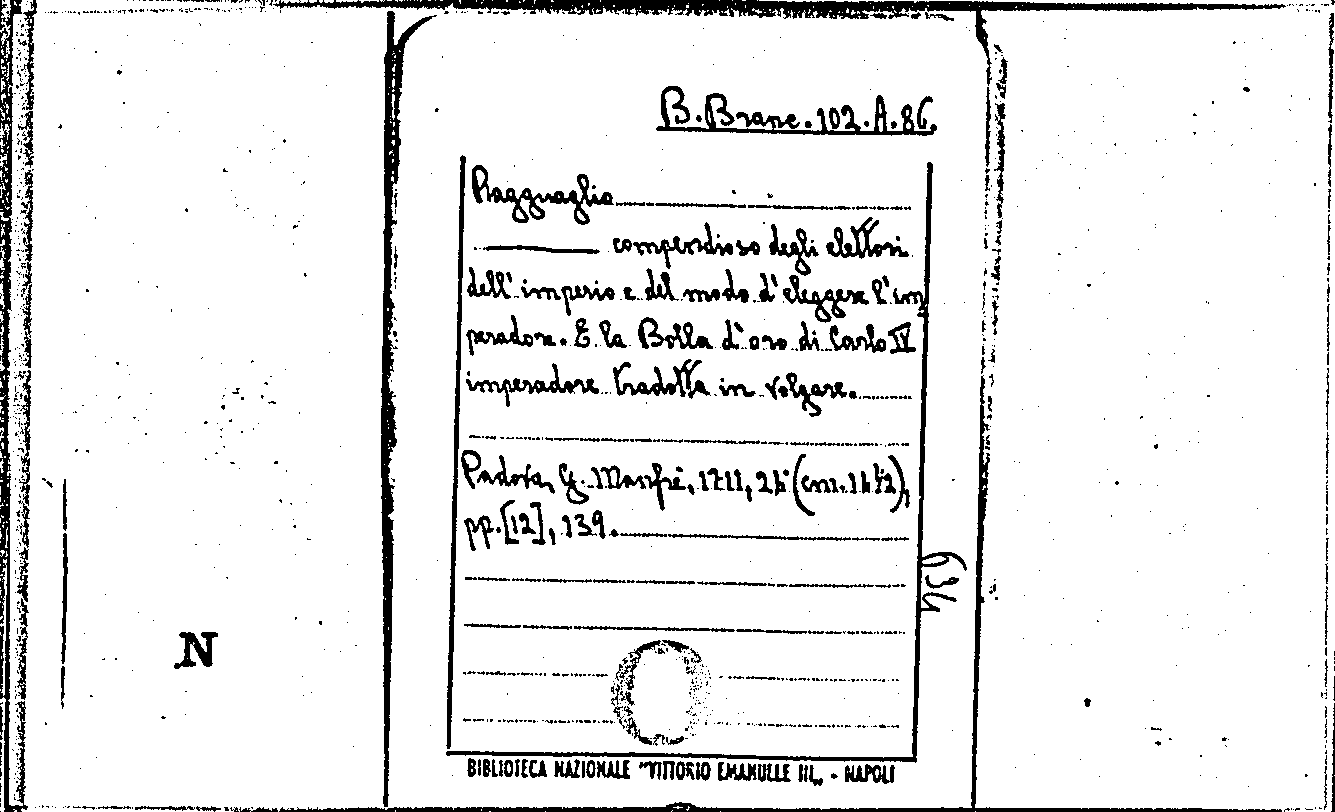 B. Branc. 102. A. 86.
Ragguaglio
compendioso degli elettori
dell' imperio e del modo d' eleggere l' im
peradore. E la Bolla d' oro di Carlo IV
imperadore tradotta in volgare.
Padova, G. Manfrè, 1711, 24° (cm. 14½),
pp. [12], 139.
634
N
BIBLIOTECA NAZIONALE "VITTORIO EMANULLE III„ - NAPOLI